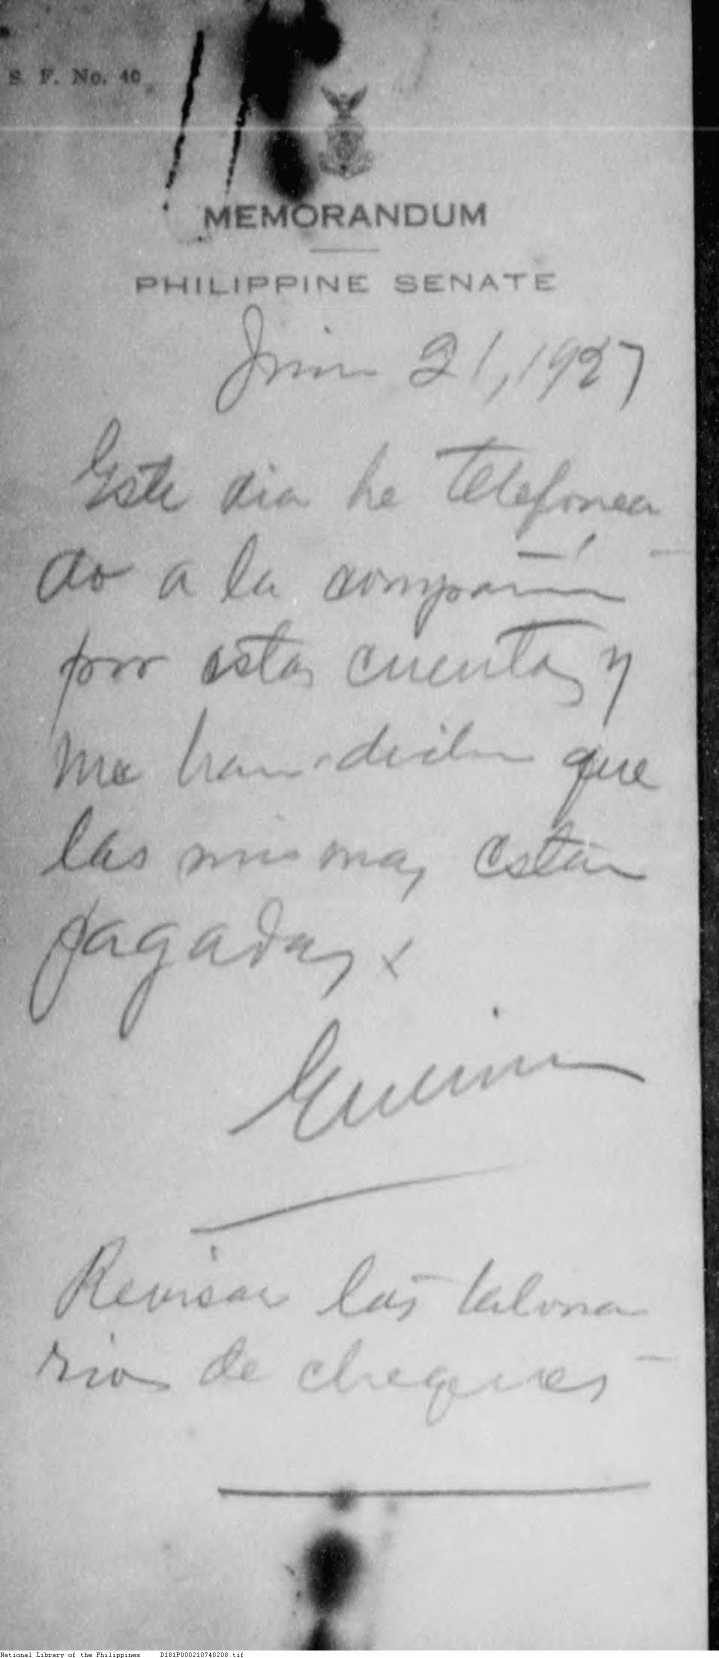 S. F. No. 40
MEMORANDUM
PHILIPPINE SENATE
Junio 21, 1927
Este dia he telefonea-
do a la compañía
por estas cuentas y
me han dicho que
las mismas están
pagadas
Revisar los talona-
rios de cheques
National Library of the Philippines D181P000210740208.tif